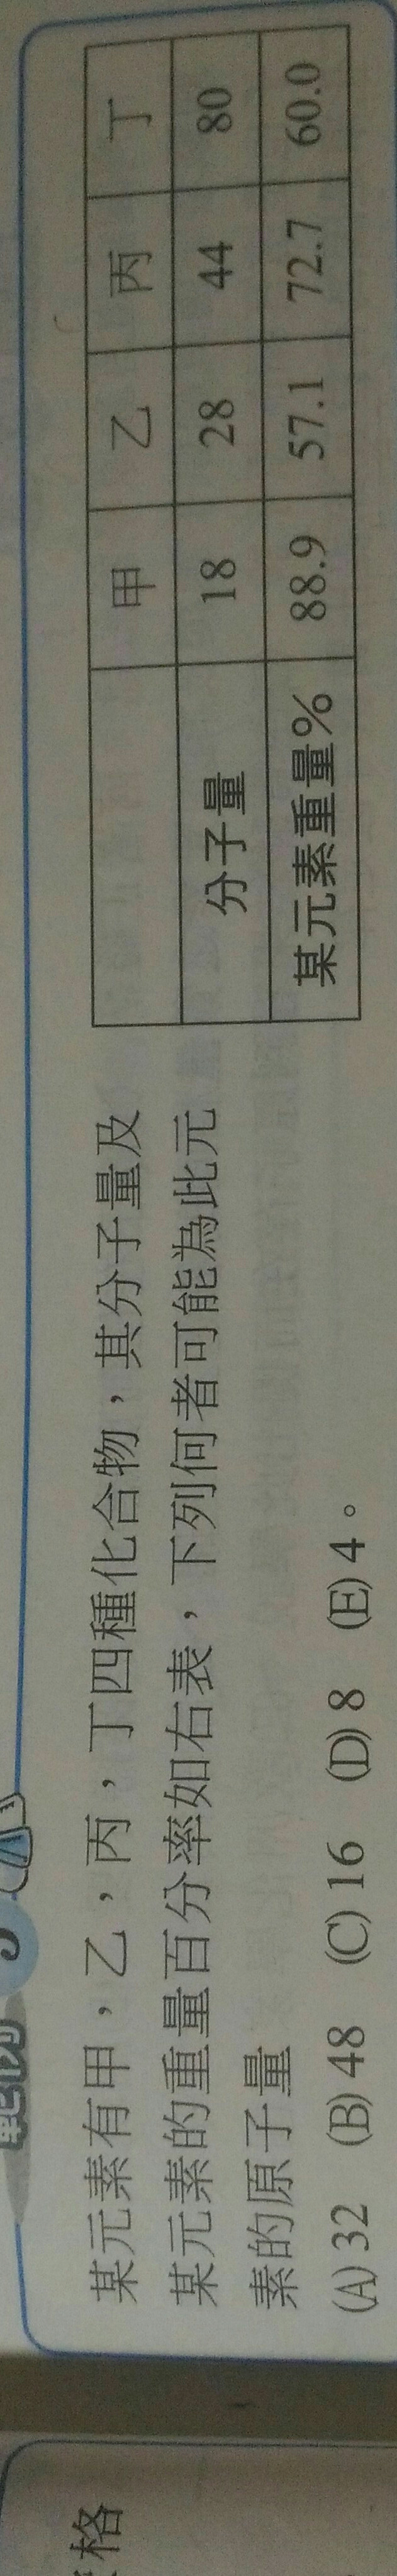 範例
某元素有甲，乙，丙，丁四種化合物，其分子量及
某元素的重量百分率如右表，下列何者可能為此元
素的原子量
(A) 32 (B) 48 (C) 16 (D) 8 (E) 4。
甲 乙 丙 丁
分子量 18 28 44 80
某元素重量% 88.9 57.1 72.7 60.0
格